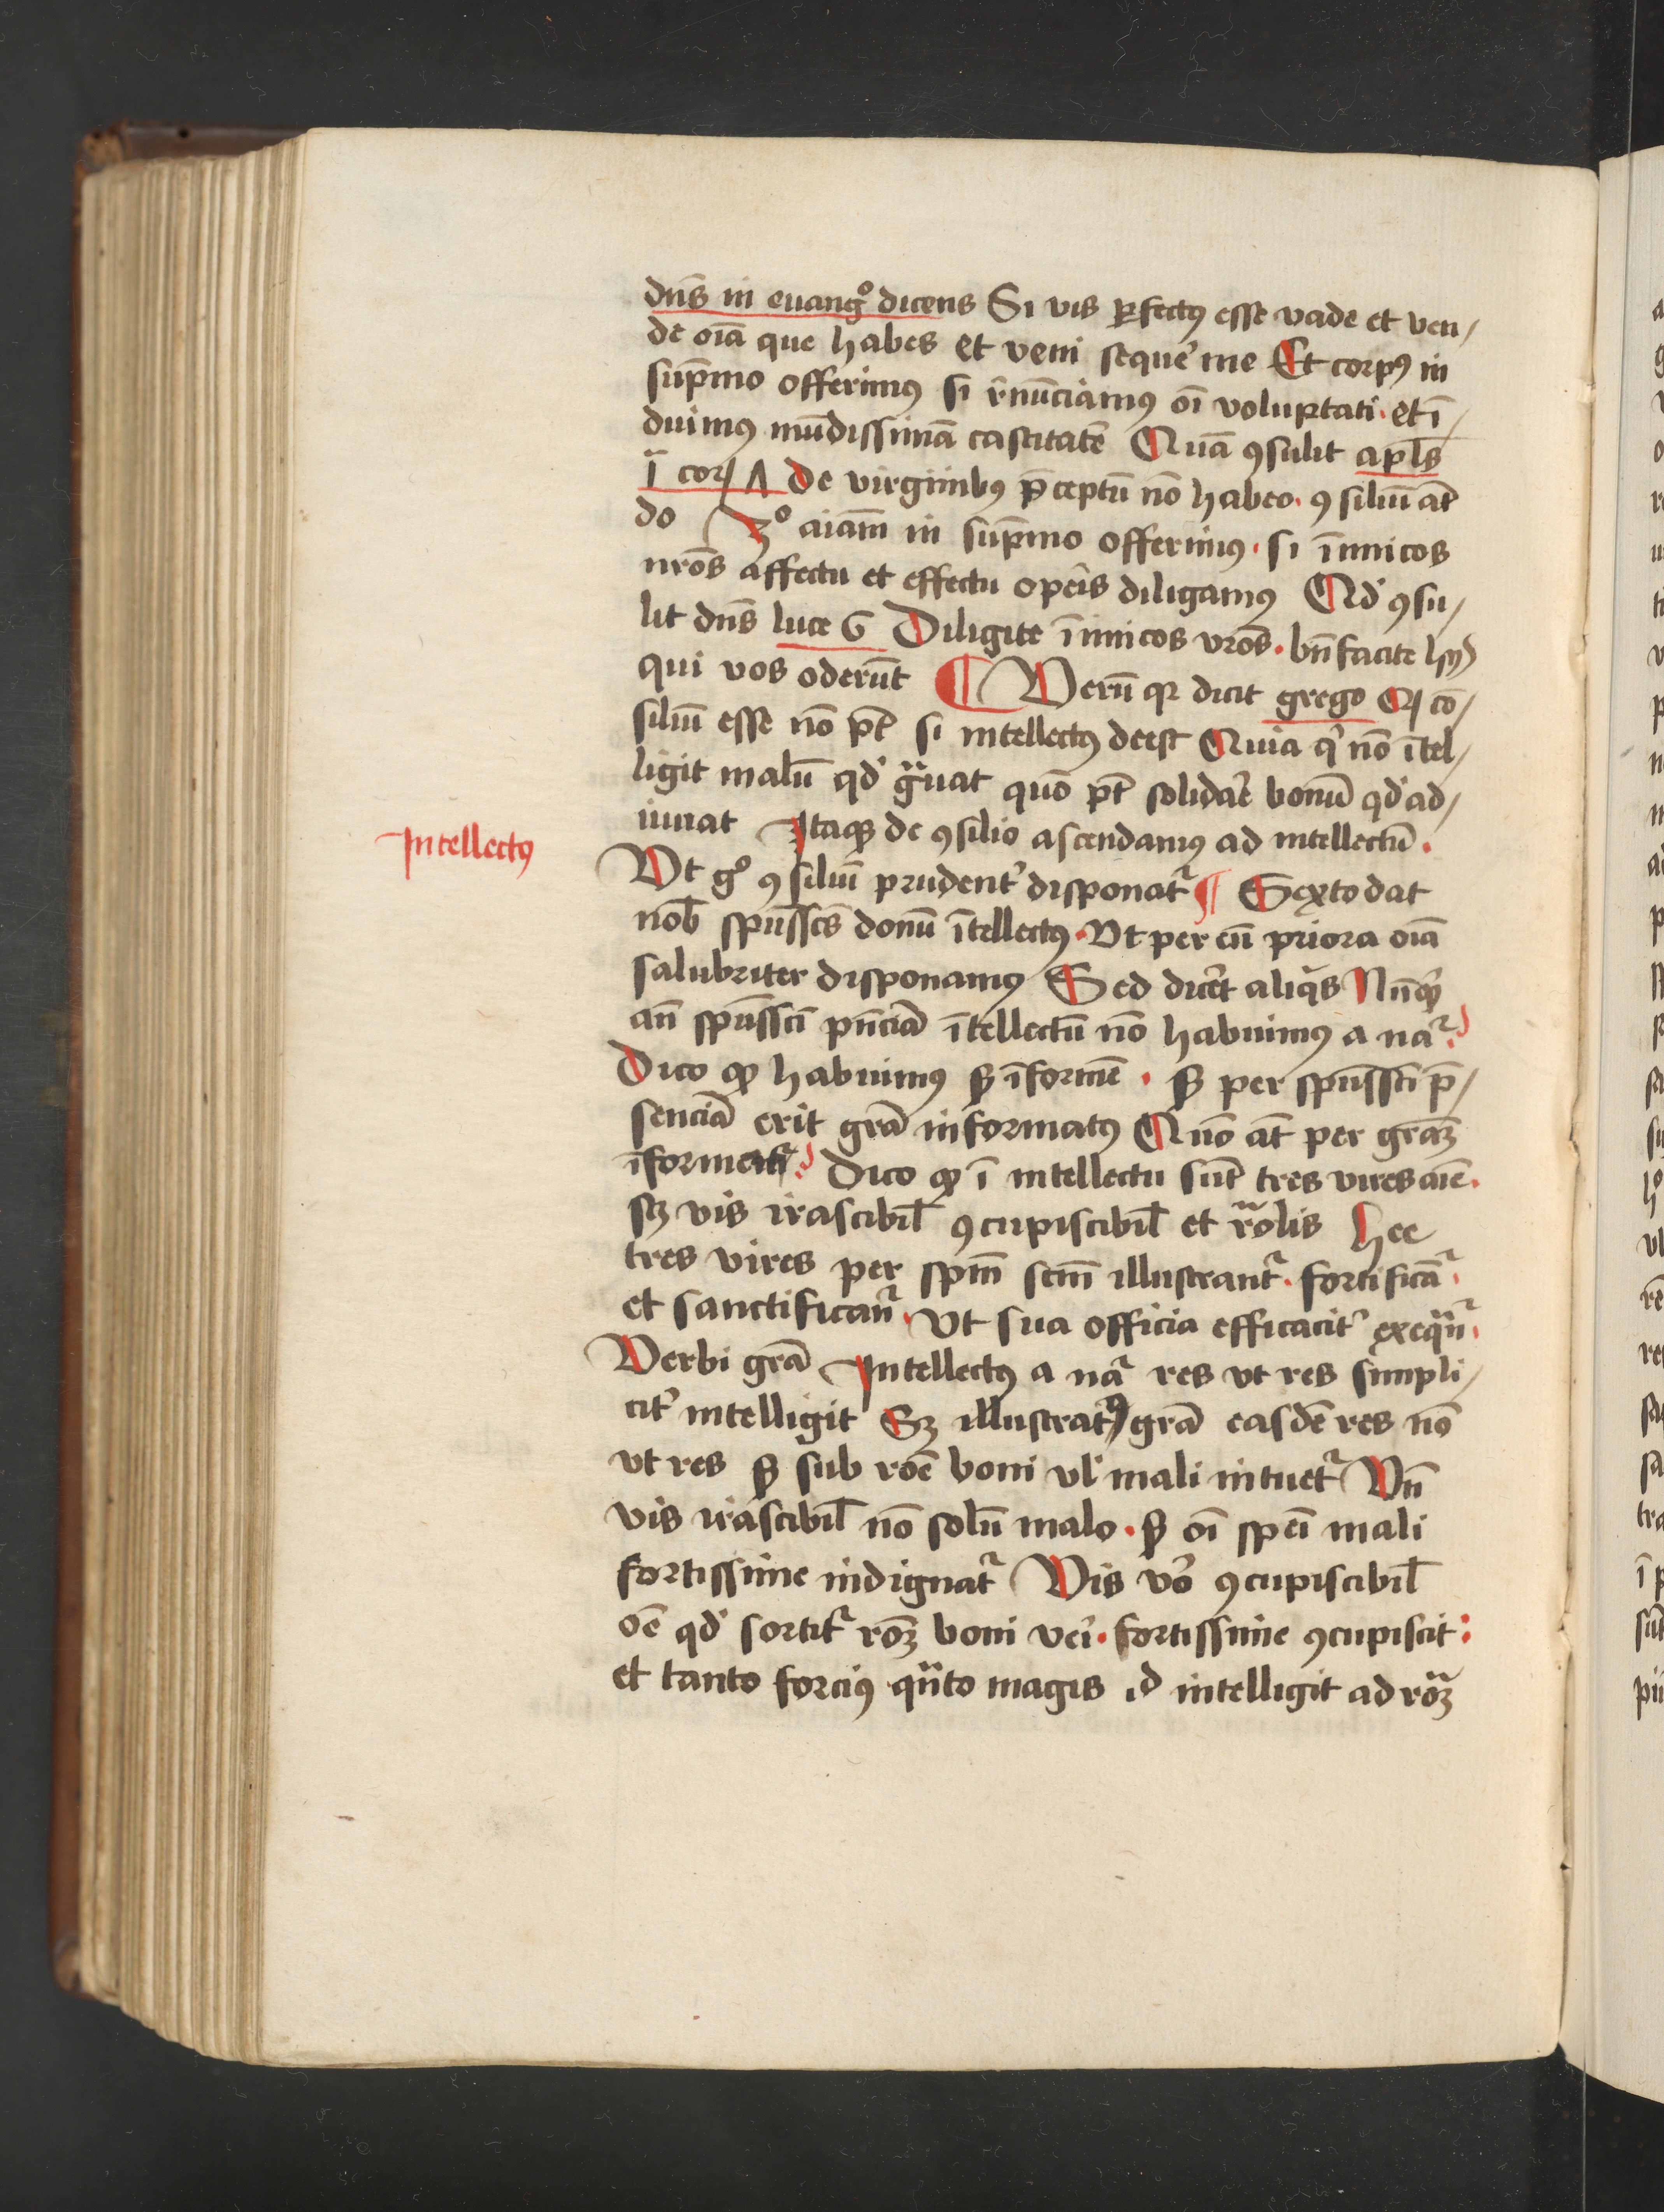 dn̄s in euang͛o dicens Si vis ꝑfectꝰ esse vade et ven⸗
de oīa que habes et veni seque͛ me Et corpꝰ in
sup̄mo offerimꝰ si r̄nūciamꝰ oī voluptati · et ī⸗
duimꝰ mūdissimā castitatē Quā ꝯsulit apl̄s
ī cor 7 De virginibꝰ p̄ceptū nō habeo · ꝯsiliū at̄
do 3º aīam in sup̄mo offerimꝰ · si īimicos
nr̄os affectu et effectu opeīs diligamꝰ Qd͛ ꝯsu⸗
lit dn̄s luce 6 Diligite īimicos vr̄os · bn̄facite hijs
qui vos oderūt ¶ Verū qꝛ dicit grego Qꝙ cō⸗
siliū esse nō pt̄ si intellectꝰ deest Quia qͥ nō ītel⸗
ligit malū qd͛ gͣuat quō pt̄ solidare bonū qd͛ ad⸗
iuuat Itaqꝫ de ꝯsilio ascendamꝰ ad intellectū ·
Intellectꝰ
Vt gͦ ꝯsiliū prudent͛ disponat᷑ ¶ Sexto dat
nob̄ spūssc̄s donū ītellectꝰ · Vt per eū priora oīa
salubriter disponamꝰ Sed dice͛t aliqͥs Nūqͥd
an̄ spūssc̄i pn̄ciā ītellectū nō habuimꝰ a na᷑ ?
Dico ꝙ habuimꝰ sꝫ īformē · sꝫ per spūssc̄i p̄⸗
senciā erit grā informatꝰ Quō at̄ per grāꝫ
īformat᷑ ? Dico ꝙ ī intellectu sūt tres vires aīe ·
sꝫ vis irascibil̄ ꝯcupiscibil̄ et rͣōlis Hee
tres vires per spm̄ scm̄ illustrant᷑ · fortificā᷑ ·
et sanctifican᷑ · Vt sua officia efficacit͛ exeqͣn᷑ ·
Verbi grā Intellectꝰ a na᷑ res vt res simpli⸗
cit͛ intelligit Sꝫ illustratꝰ grā easdē res nō
vt res sꝫ sub rōe boni vl͛ mali intuet᷑ Vn̄
vis irascibil̄ nō solū malo · sꝫ oī spēi mali
fortissime indignat᷑ Vis vͦo ꝯcupiscibil̄
oē qd͛ sortit᷑ rōꝫ boni vei͛ · fortissime ꝯcupiscit :
et tanto forciꝰ qͣnto magis id intelligit ad rōꝫ